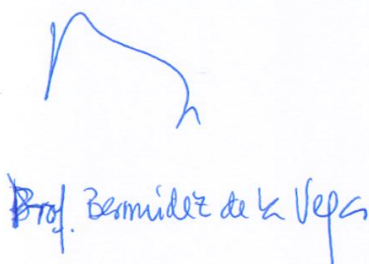 Prof. Bermúdez de la Vega